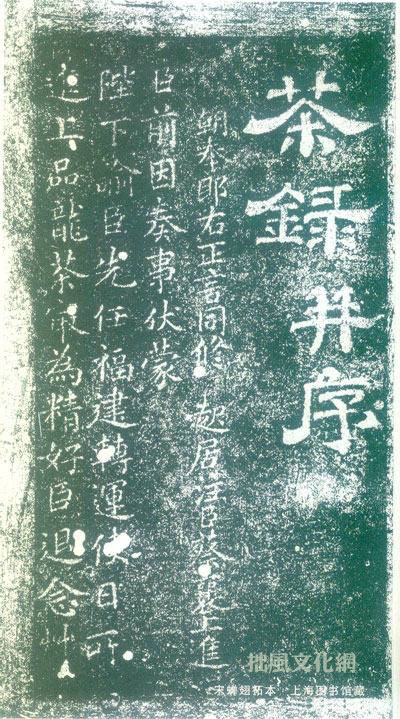 茶録并序
朝奉郎右正言同修起居注臣蔡襄上進
臣前因奏事伏蒙
陛下諭臣先任福建轉運使日所
進上品龍茶最為精好臣退念艸
拙風文化網
宋蟬翅拓本 上海图书馆藏